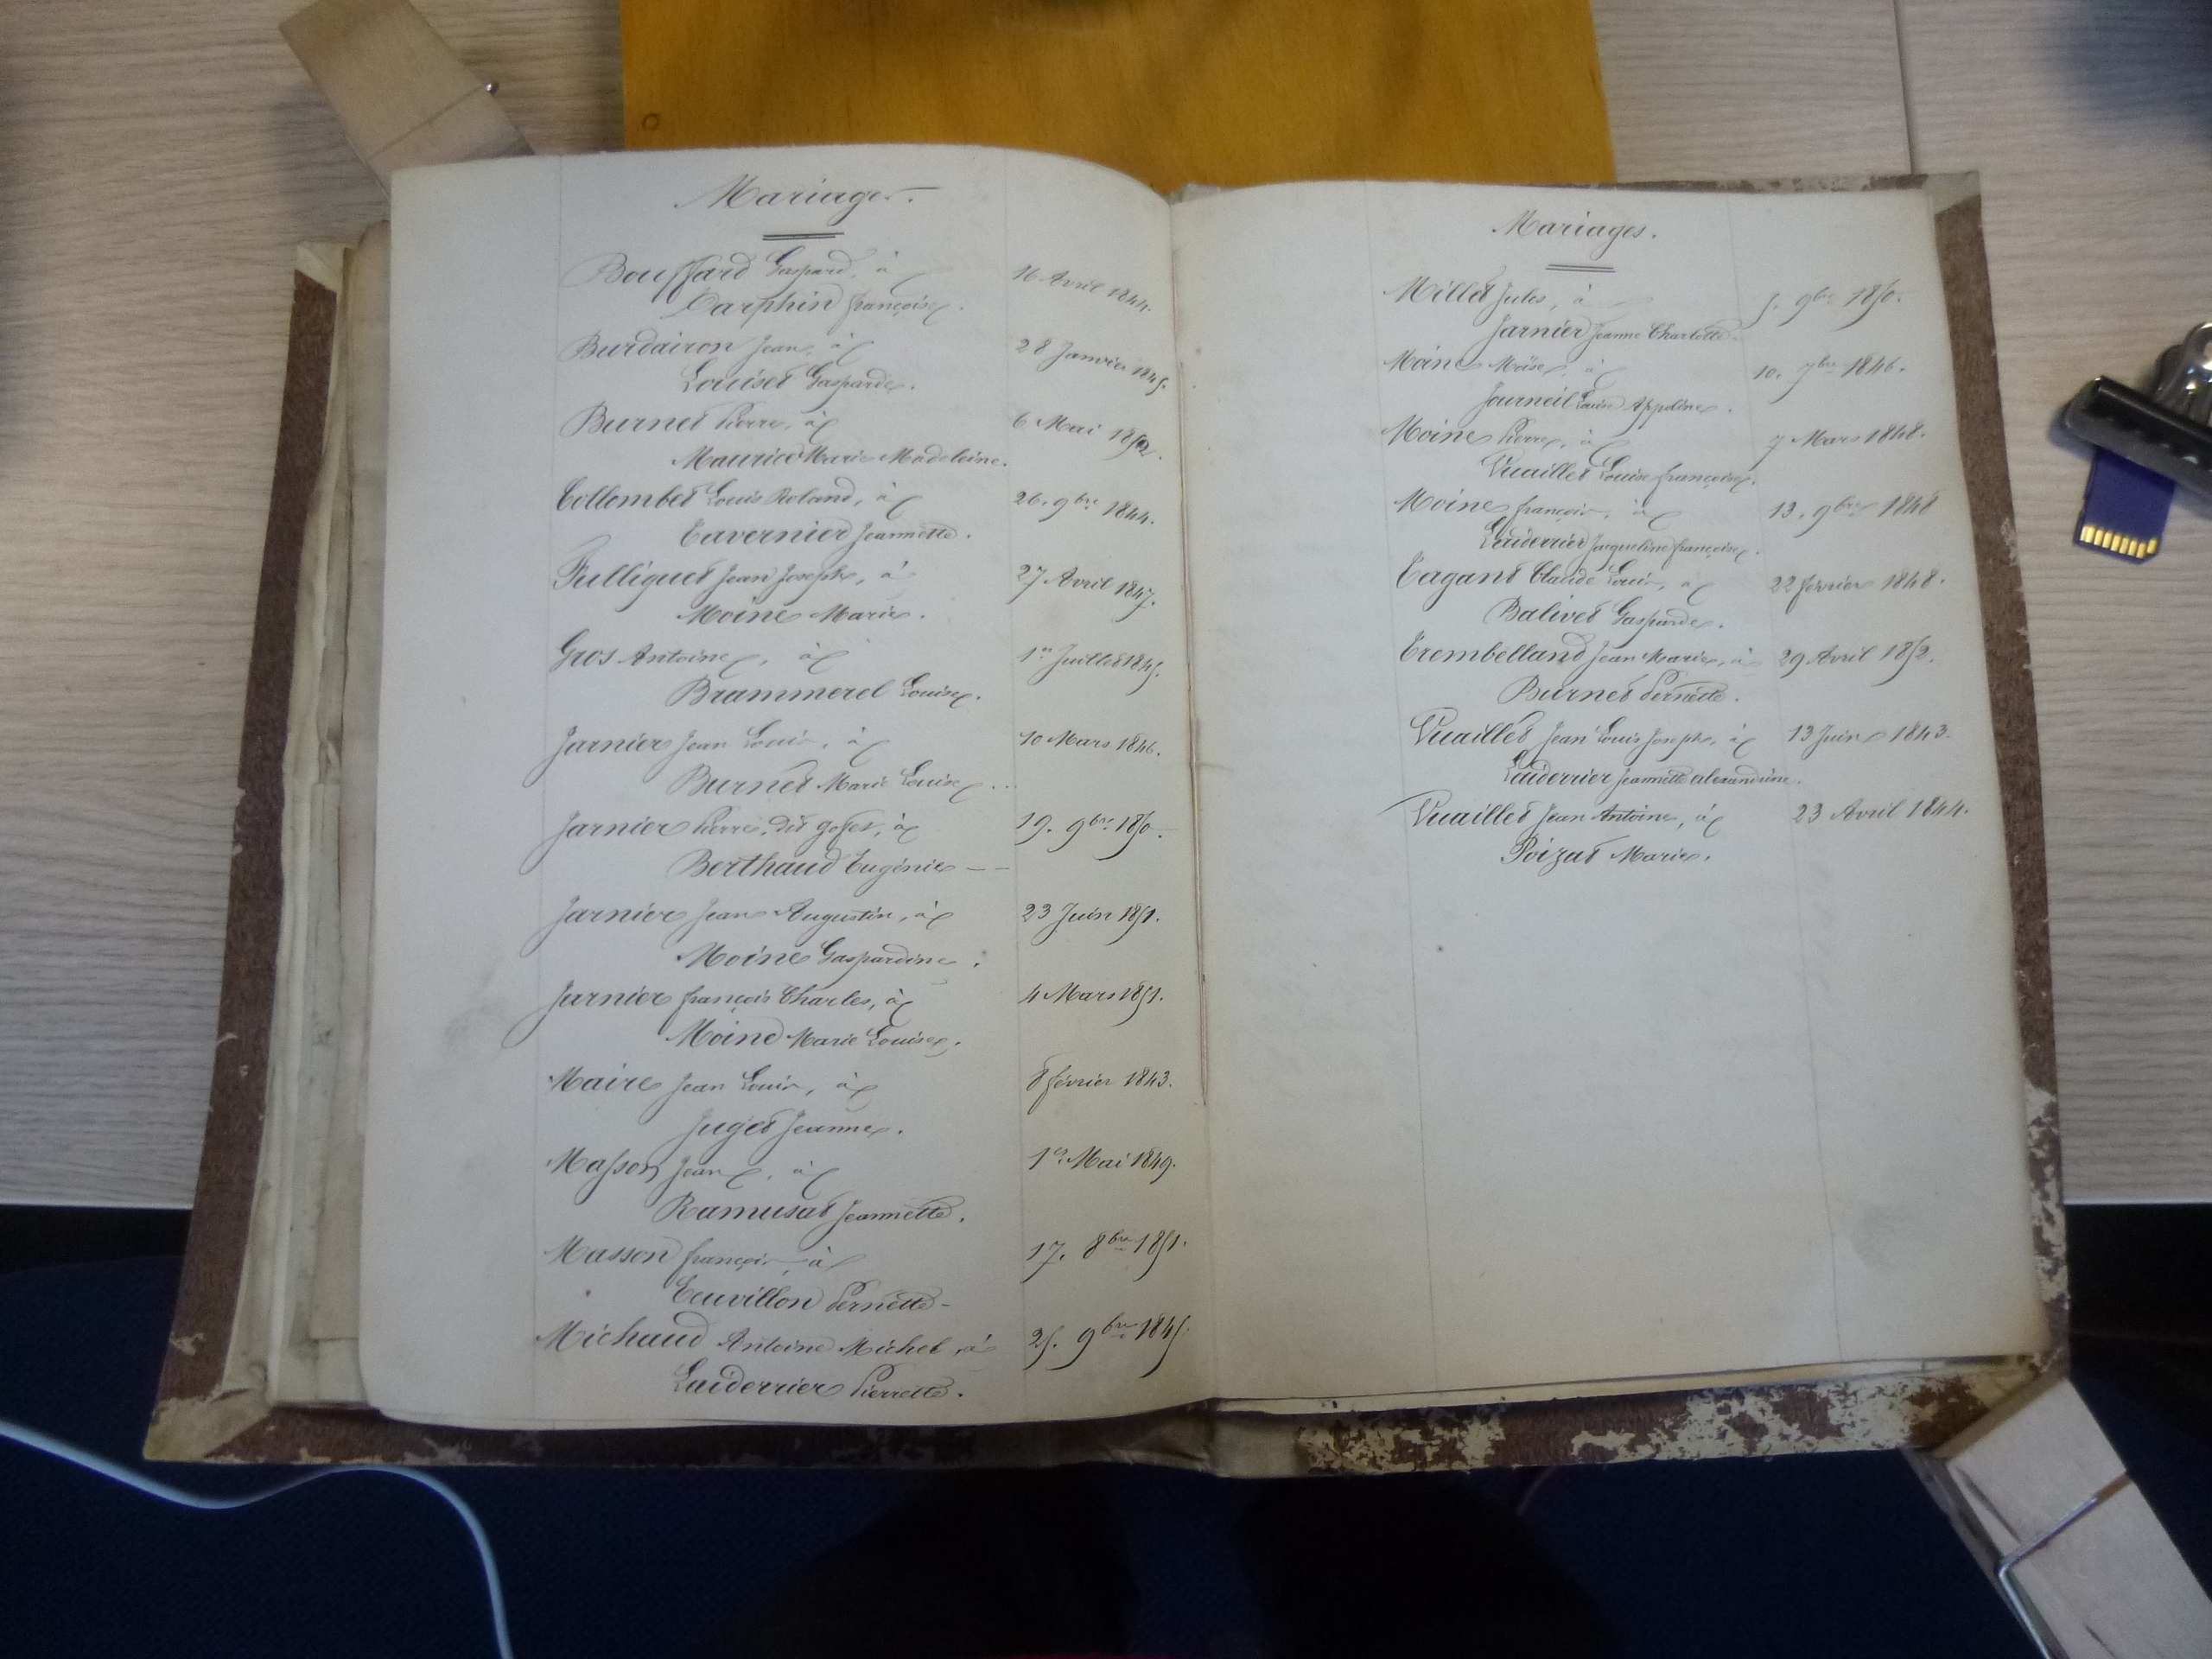 Mariages.
Bouffard Gaspard, à 16 Avril 1844.
Carphin françoise.
Burdairon Jean, à 28 Janvier 1845.
Louiset Gasparde.
Burnet Pierre, à 6 Mai 1852.
Maurice Marie Madeleine.
Collombet Louis Roland, à 26. 9bre 1844.
Tavernier Jeannette.
Fulliquet Jean Joseph, à 27 Avril 1847.
Moine Marie.
Gros Antoine, à 1er Juillet 1845.
Brammerel Louise.
Jarnier Jean Louis, à 10 Mars 1846.
Burnet Marie Louise
Jarnier Pierre, dit goset, à 19. 9bre 1850.
Berthaud Eugénie
Jarnier Jean Augustin, à 23 Juin 1851.
Moine Gaspardine.
Jarnier françois Charles, à 4 Mars 1851.
Moine Marie Louise.
Maire Jean Louis, à 8 février 1843.
Juget Jeanne.
Masson Jean, à 1er Mai 1849.
Ramusat Jeannette.
Masson françois, à 17. 8bre 1851.
Euvillon Pernette
Michaud Antoine Michel, à 25. 9bre 1845.
Laiderrier Pierrette.
Mariages.
Millet Jules, à 5. 9bre 1850.
Jarnier Jeanne Charlotte.
Moine Moïse, à 10. 7bre 1846.
Journeil Louise Appoline.
Moine Pierre, à 7 Mars 1848.
Vuaillet Louise françoise.
Moine françois, à 13. 9bre 1848
Laiderrier Jacqueline françoise.
Tagant Claude Louis, à 22 février 1848.
Balivet Gasparde.
Trembelland Jean Marie, à 29 Avril 1852.
Burnet Pernette.
Vuaillet Jean Louis Joseph, à 13 Juin 1843.
Laiderrier Jeannette alexandrine.
Vuaillet Jean Antoine, à 23 Avril 1844.
Poizat Marie.